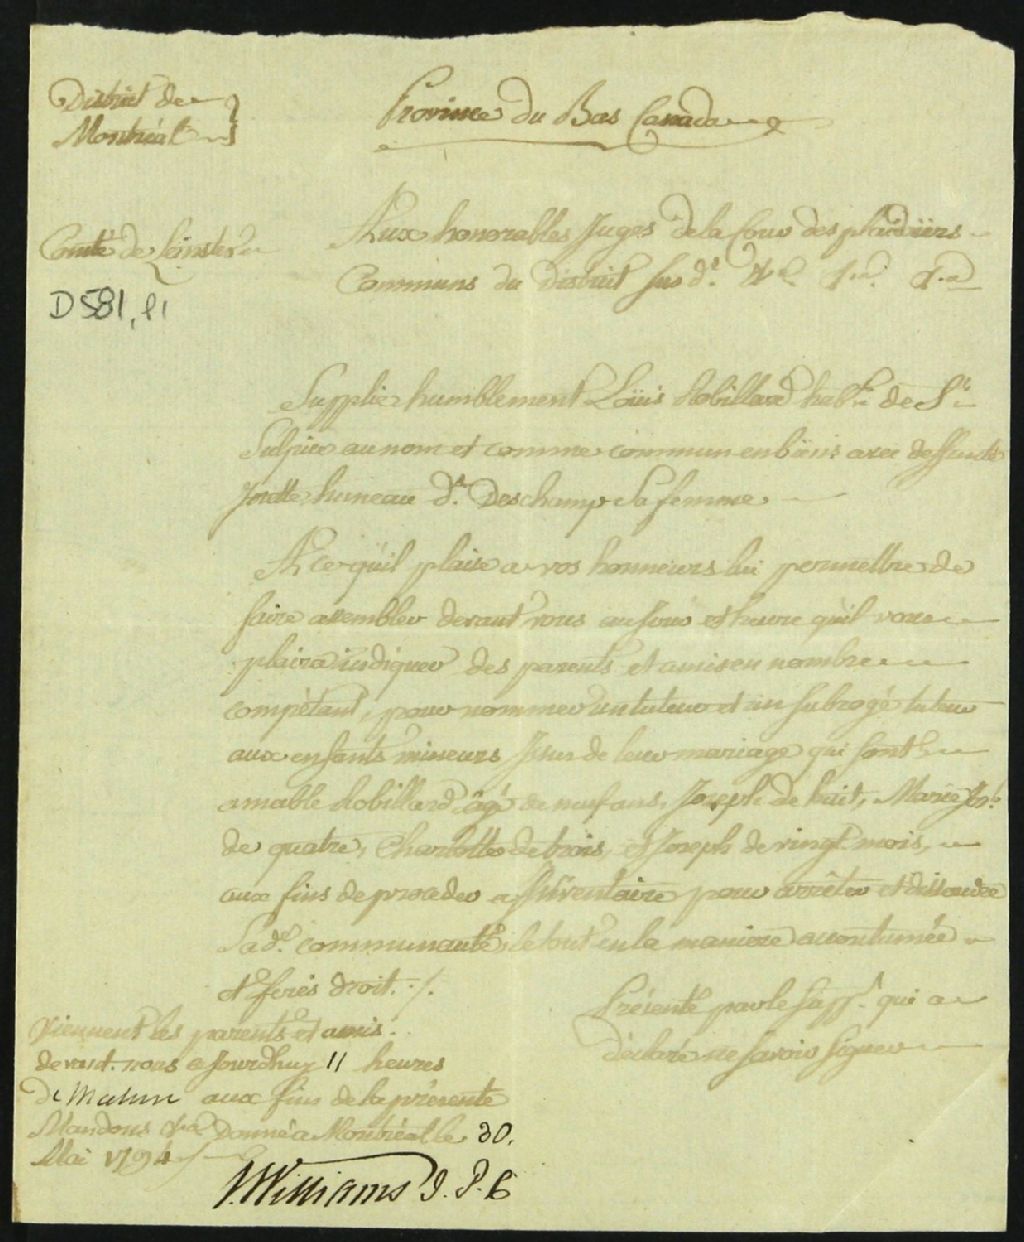 District de
Montréal
Province du Bas Canada
Comté de Leinster
D581, P1
Aux honorables Juges de la Cour des plaidoiers
Communs du district susd.t &c &.ca &.ca
Supplie humblement Loüis Robillard hab.t de S.t
Sulpice au nom et comme commun en biens avec deffunte
huneau d.t Deschamp Sa femme
A ce qu'il plaise a vos honneurs lui permettre de
faire assembler devant vous au Jour et heure qu'il vous
plaira indiquer des parents et amis en nombre
compètant, pour nommer un tuteur et un subrogé tuteur
aux enfants mineurs Issus de leur mariage qui sont
amable Robillard âgé de neuf ans, Joseph de huit, Marie Jos.e
de quatre, Charlotte de trois, et Joseph de vingt mois,
aux fins de proceder a Inventaire pour arrêter et dissoudre
Sad.e communauté, le tout en la maniere accoutumée
et ferés droit ./.
Présenté par le Supp.t qui a
déclaré ne savoir signer
Viennent les parents et amis
devant nous ce Jourdhuy 11 heures
de Matin aux fins de la présente
Mandons &ca Donné a Montréal le 30.
Mai 1794
J. Williams J. P. C